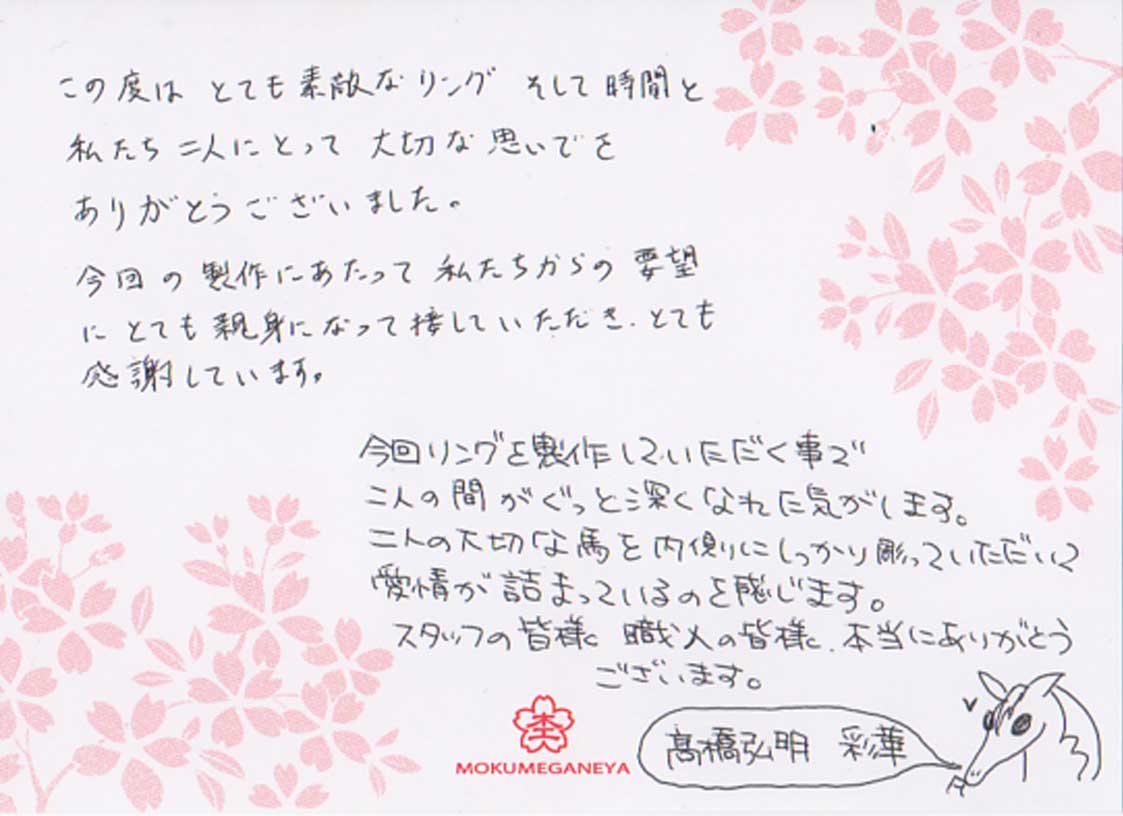 この度は とても素敵なリング そして時間と
私たち二人にとって 大切な思いでを
ありがとうございました。
今回の製作にあたって 私たちからの要望
にとても親身になって接していただき、とても
感謝しています。
今回リングを製作していただく事で
二人の間がぐっと深くなれた気がします。
二人の大切な馬を内側にしっかり彫っていただいて
愛情が詰まっているのを感じます。
スタッフの皆様と 職人の皆様、本当にありがとう
ございます。
髙橋弘明 彩華
MOKUMEGANEYA